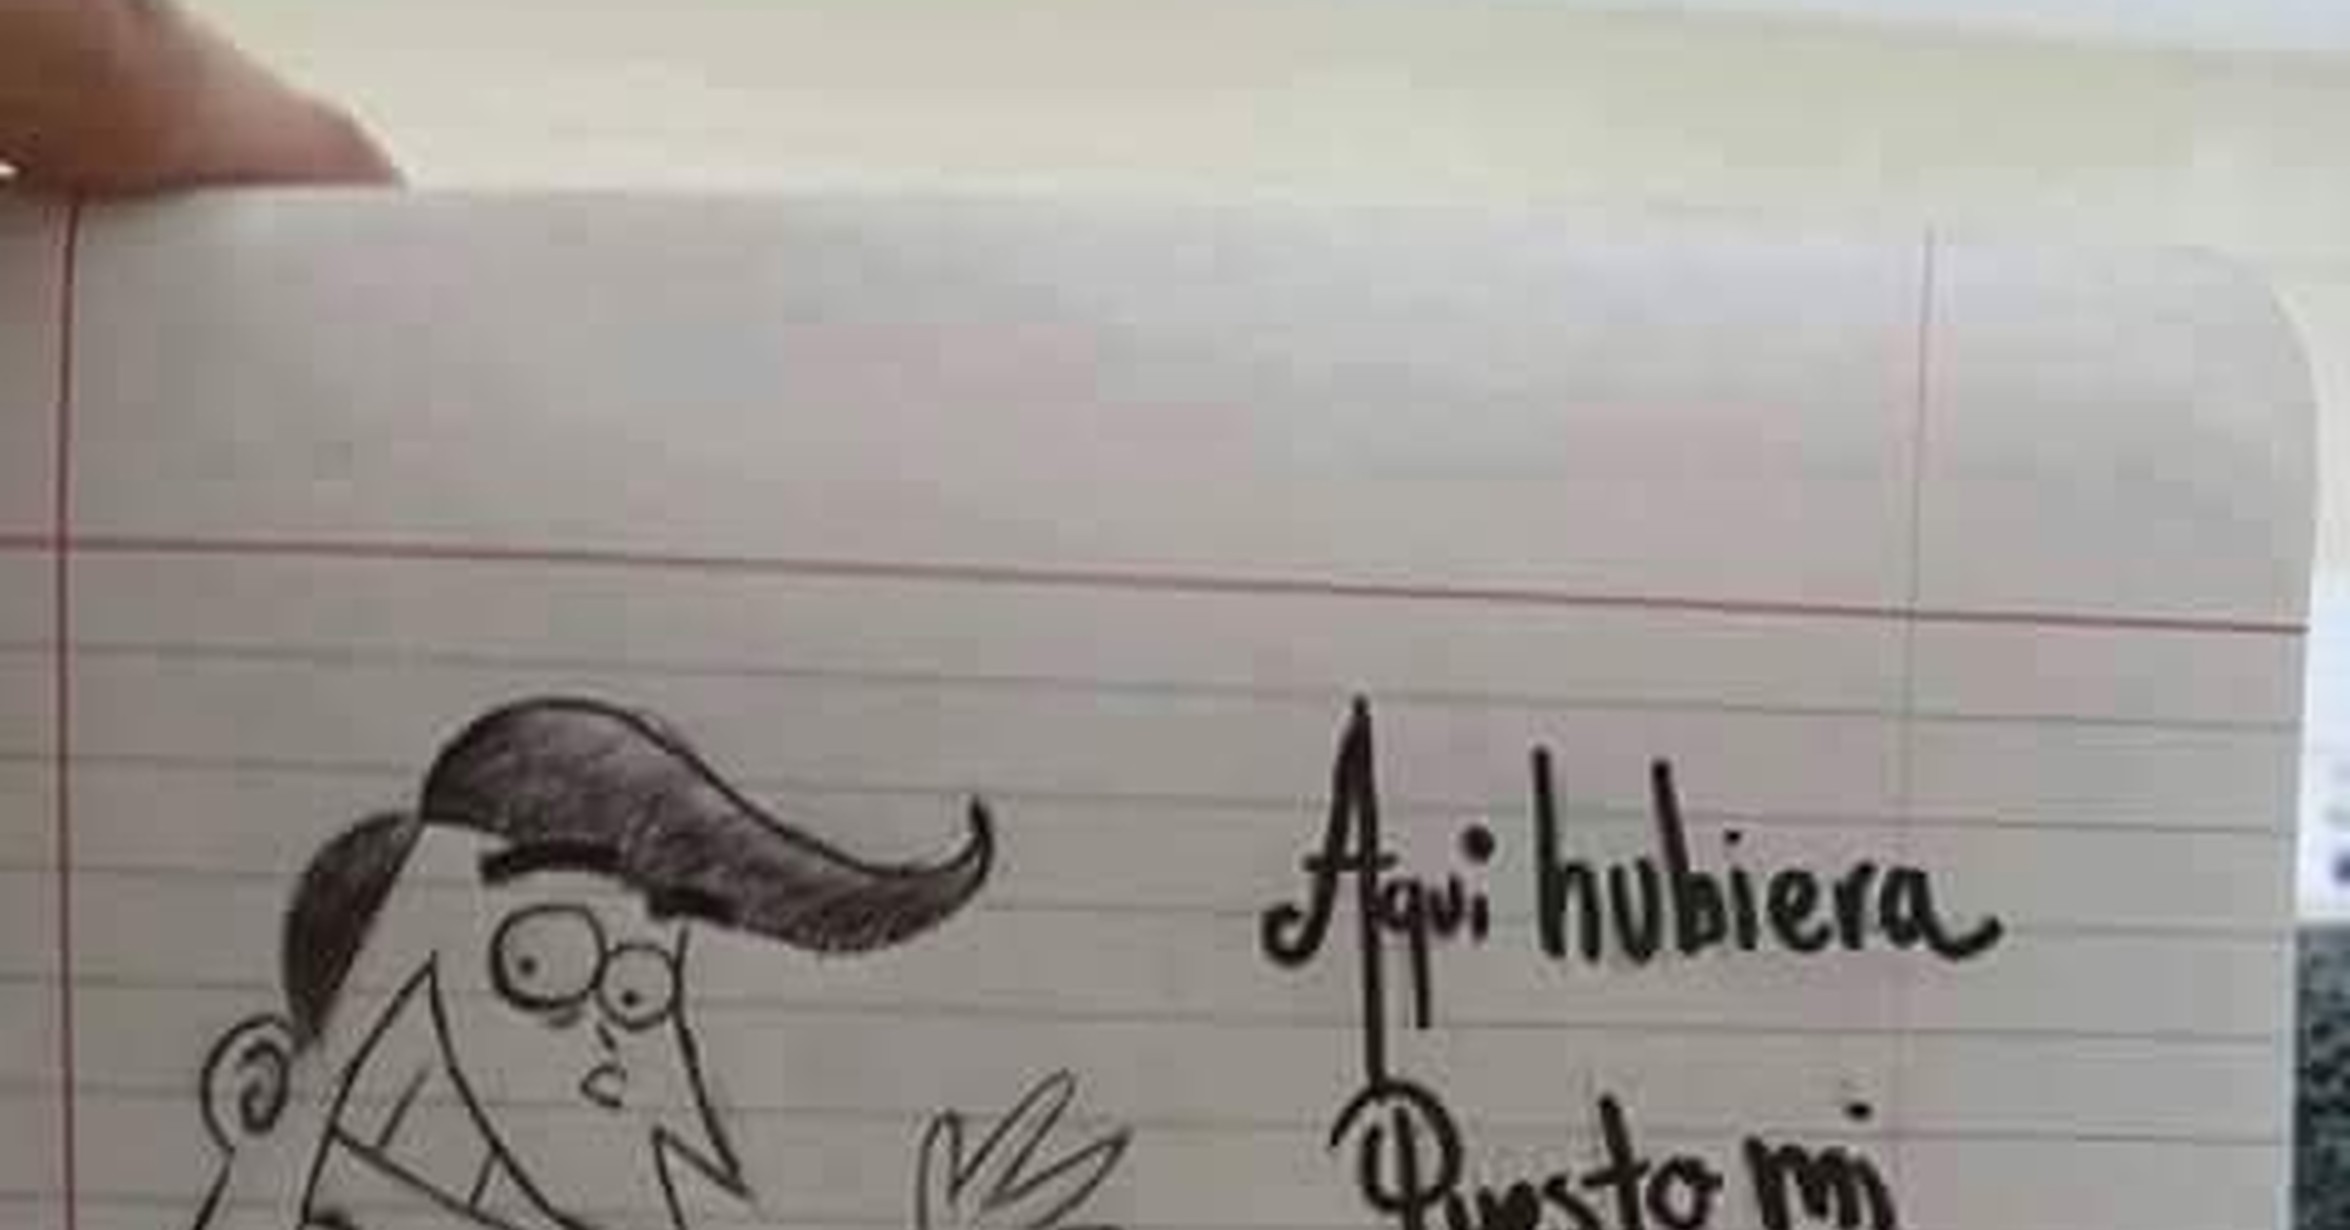 Aqui hubiera
Puesto mi